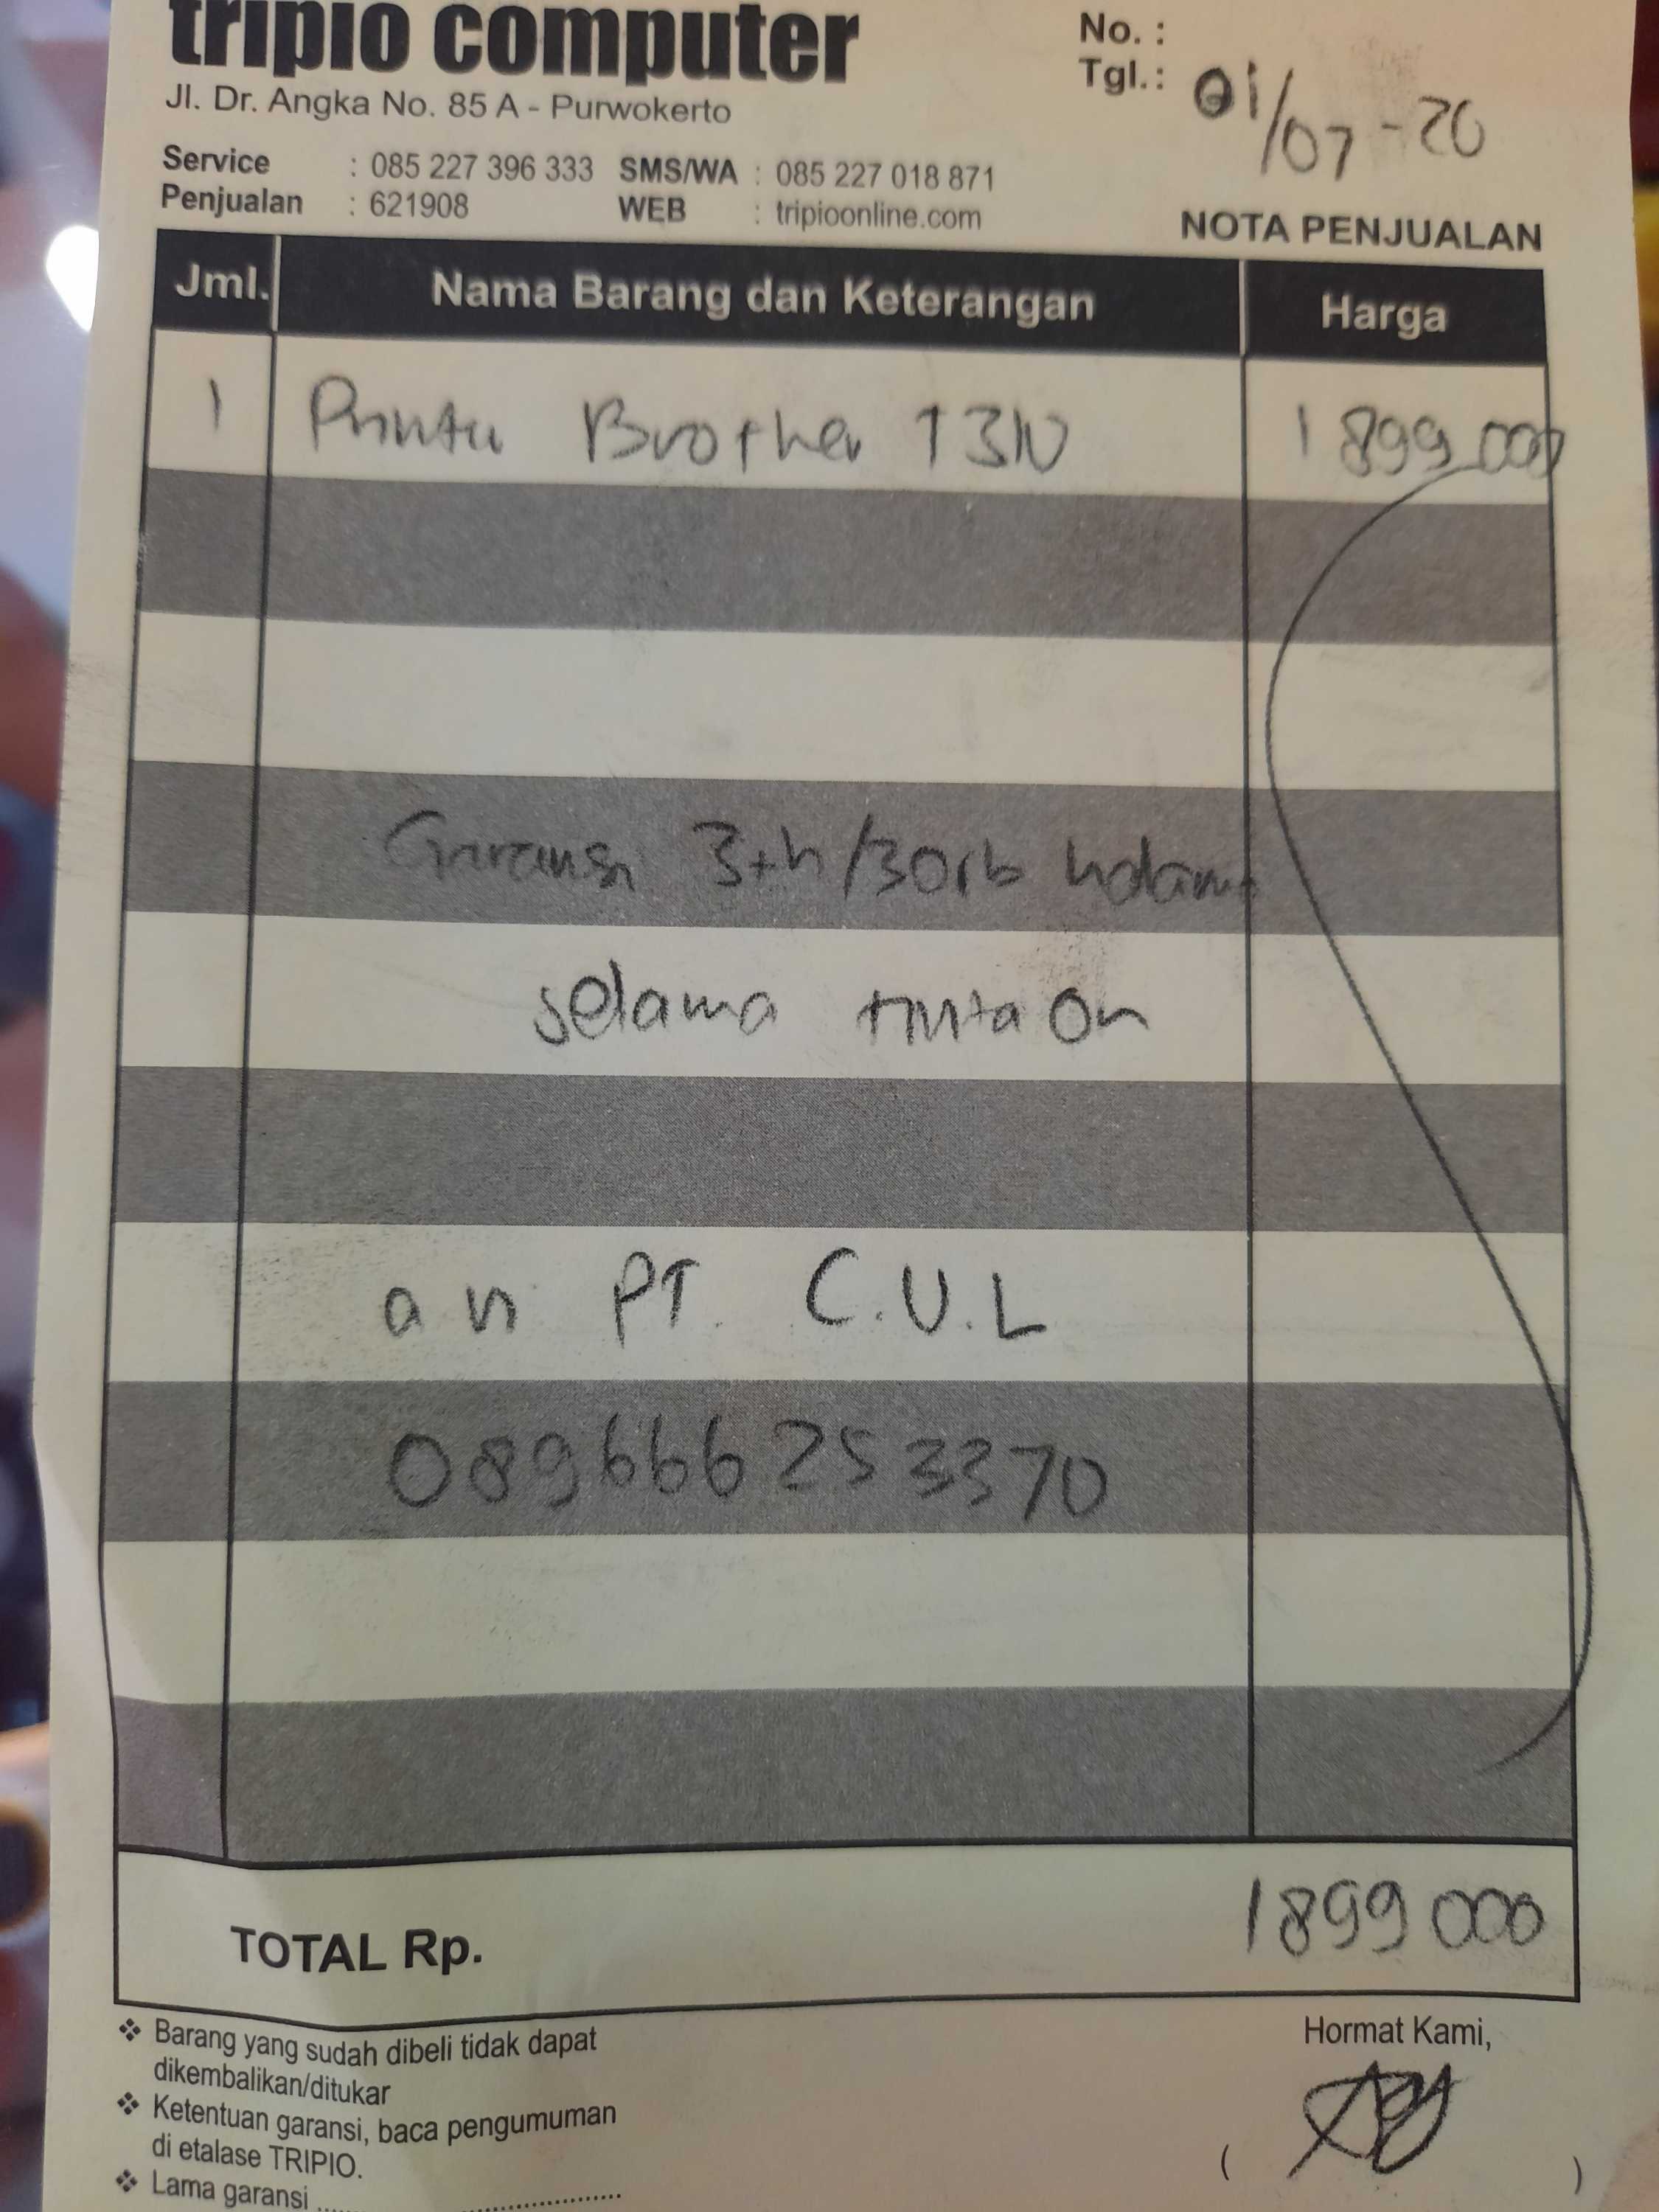 tripio computer
Jl. Dr. Angka No. 85 A - Purwokerto
Service : 085 227 396 333 SMS/WA : 085 227 018 871
Penjualan : 621908 WEB : tripioonline.com
No. :
Tgl.: 01/07-20
NOTA PENJUALAN
Jml. Nama Barang dan Keterangan Harga
1 Printer Brother T310 1 899.000
Garansi 3th/30rb halaman
selama tinta on
an PT. C.U.L
089666253370
TOTAL Rp. 1899 000
❖ Barang yang sudah dibeli tidak dapat
dikembalikan/ditukar
❖ Ketentuan garansi, baca pengumuman
di etalase TRIPIO.
❖ Lama garansi ........................
Hormat Kami,
( )